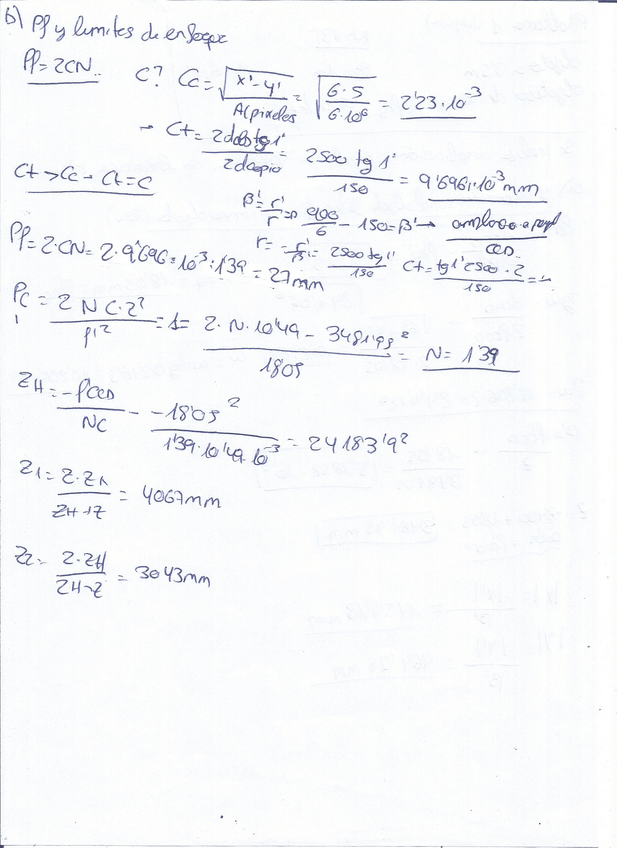 b) Pf y limites de enfoque
Pf = 2CN.. C? Cc = √(x'-y' / A(pixeles)) = √(6·5 / 6·10⁶) = 2'23·10⁻³
→ Ct = 2dobs tg1' / 2dcopio = 2500 tg 1' / 150 = 9'6961·10⁻³ mm
Ct > Cc → Ct = C
β' = r'/r = 900/6 - 150 = β' →
CCD
Pf = 2·CN = 2·9'696·10⁻³·139 = 27mm r = - r'/β' = 2500 tg 1' / 150 Ct = tg1' 2500·2 / 150 =
Pc = 2 N C·z² / f'² = 1 = 2·N·10'49 - 3481'99² / 1805 = N = 1'39
ZH = -fCCD / NC - -18'05² / 1'39·10'49·10⁻³ = 24183'9²
Z1 = Z·ZH / ZH+Z = 4067mm
Z2 = Z·ZH / ZH-Z = 3043mm